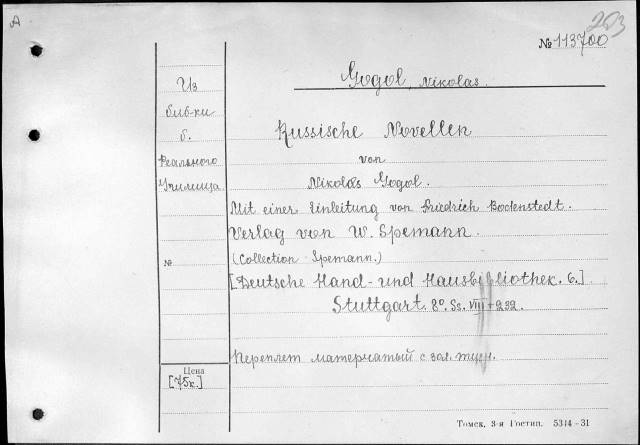 A
203
№ 113700
Gogol, Nikolas.
Из
биб-ки
б.
Реального
Училища
Russische Novellen
von
Nikolas Gogol.
Mit einer Einleitung von Friedrich Bodenstedt.
Verlag von W. Spemann.
(Collection Spemann.)
№
[Deutsche Hand- und Hausbibliothek. 6.]
Stuttgart. 8º. Ss. VIII + 232.
Переплет матерчатый с зол. тисн.
Цена
[75к.]
Томск, 3-я Гостип. 5314-31